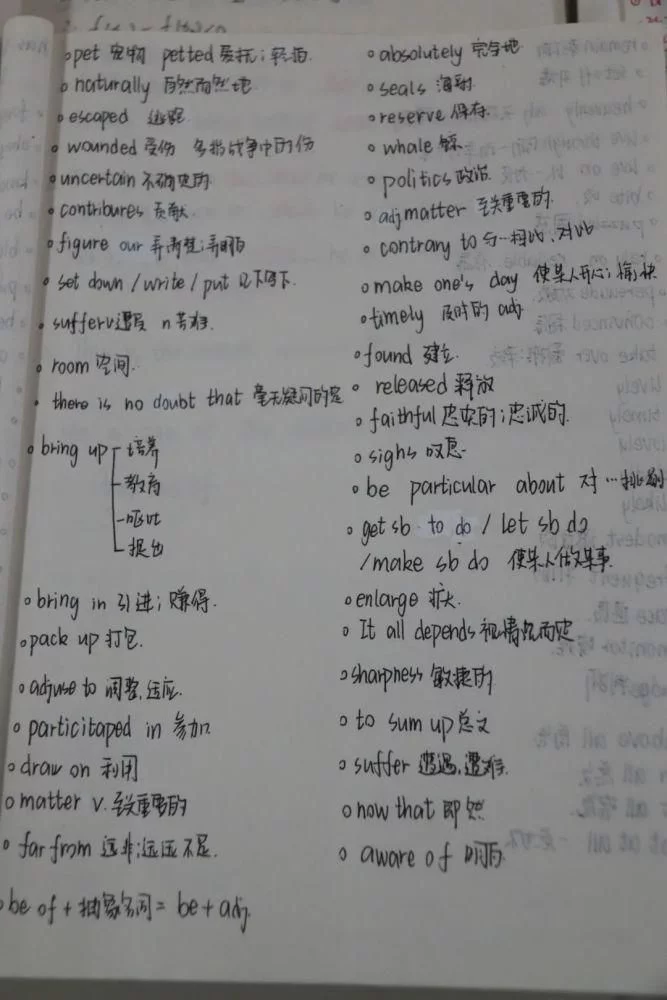 pet 宠物 petted 爱抚；轻拍
naturally 自然而然地
escaped 逃跑
wounded 受伤 多指战争中的伤
uncertain 不确定的
contribures 贡献
figure our 弄清楚；弄明白
set down / write / put 记下写下
suffer v遭受 n苦难
room 空间
there is no doubt that 毫无疑问的是
bring up 培养
教育
呕吐
提出
bring in 引进；赚得
pack up 打包
adjuse to 调整，适应
particitaped in 参加
draw on 利用
matter v. 至关重要的
far from 远非；远远不是
be of + 抽象名词 = be + adj
absolutely 完全地
seals 海豹
reserve 保存
whale 鲸
politics 政治
adj matter 至关重要的
contrary to 与…相比，对比
make one's day 使某人开心；愉快
timely 及时的 adj
found 建立
released 释放
faithful 忠实的；忠诚的
sighs 叹息
be particular about 对…挑剔
get sb to do / let sb do
/ make sb do 使某人做某事
enlarge 扩大
It all depends 视情况而定
sharpness 敏捷的
to sum up 总之
suffer 遭遇，遭难
now that 即然
aware of 明白